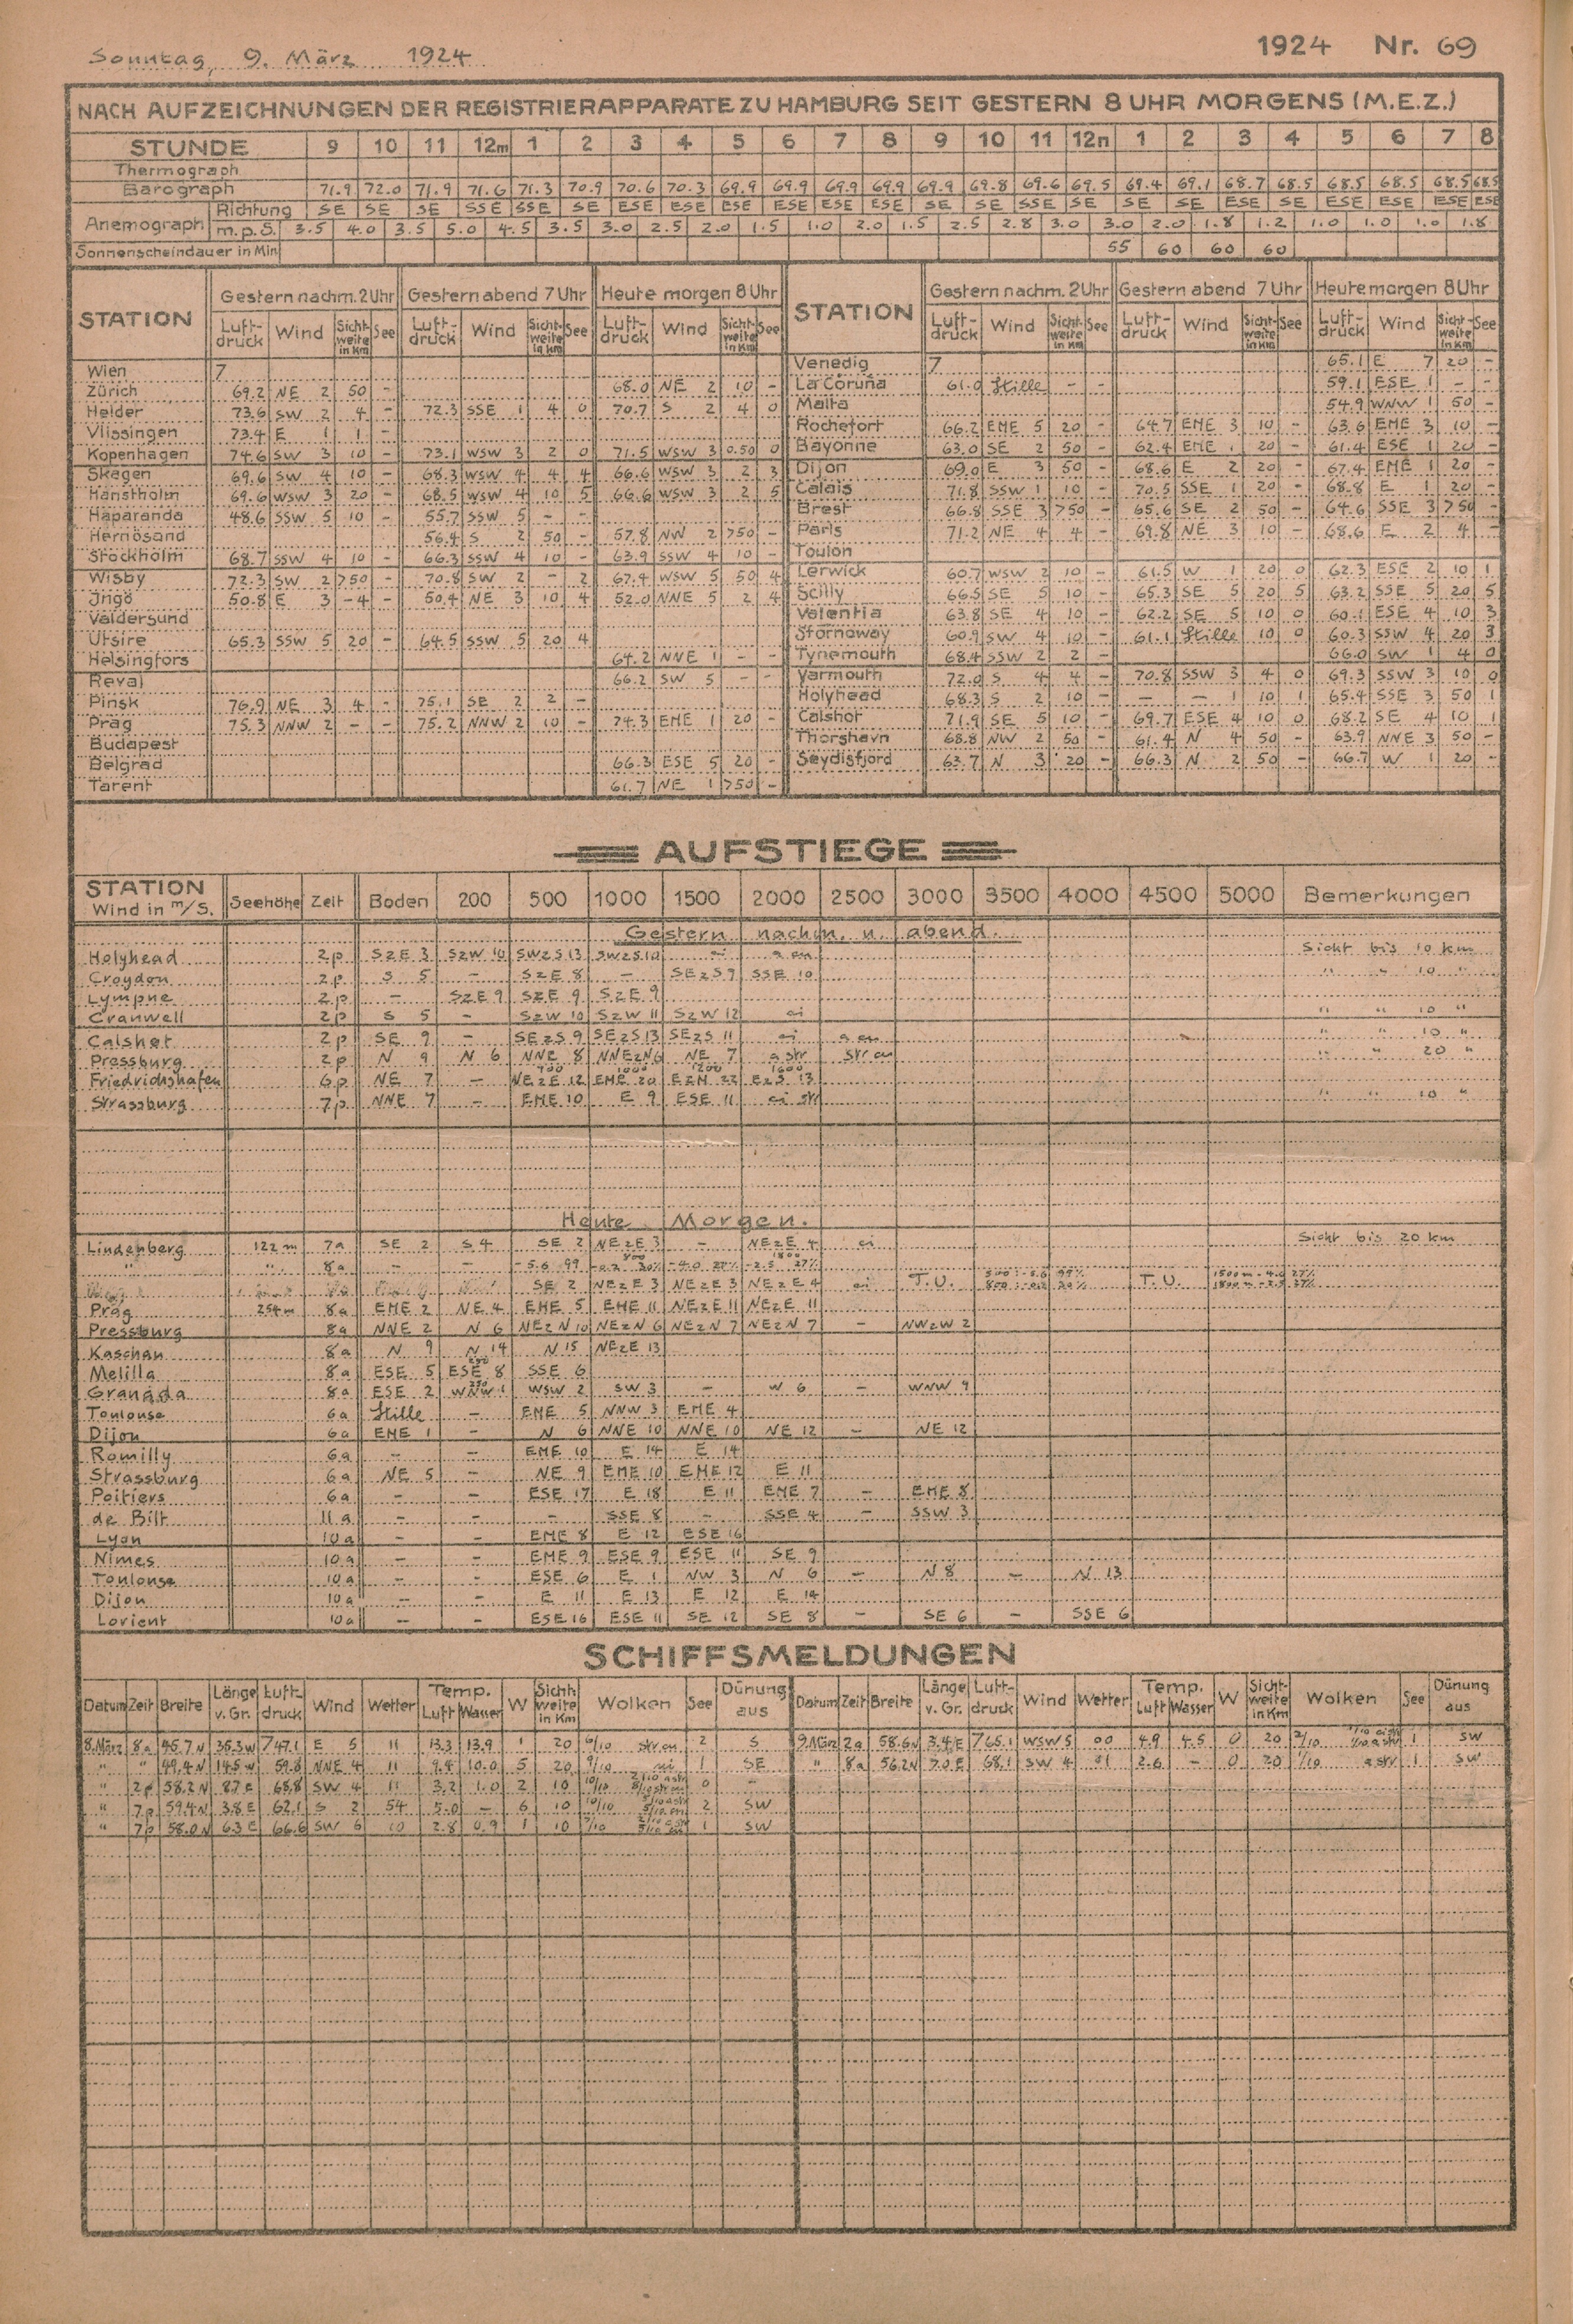 Sonntag, 9. März 1924
1924 Nr. 69
NACH AUFZEICHNUNGEN DER REGISTRIERAPPARATE ZU HAMBURG SEIT GESTERN 8 UHR MORGENS (M.E.Z.)
STUNDE 9 10 11 12m 1 2 3 4 5 6 7 8 9 10 11 12n 1 2 3 4 5 6 7 8
Thermograph
Barograph 71.9 72.0 71.9 71.6 71.3 70.9 70.6 70.3 69.9 69.9 69.9 69.9 69.9 69.8 69.6 69.5 69.4 69.1 68.7 68.5 68.5 68.5 68.5 68.5
Anemograph Richtung SE SE SE SSE SSE SE ESE ESE ESE ESE ESE ESE SE SE SSE SE SE SE ESE SE ESE ESE ESE ESE
m.p.S. 3.5 4.0 3.5 5.0 4.5 3.5 3.0 2.5 2.0 1.5 1.0 2.0 1.5 2.5 2.8 3.0 3.0 2.0 1.8 1.2 1.0 1.0 1.0 1.8
Sonnenscheindauer in Min 55 60 60 60
STATION Gestern nachm. 2 Uhr Gestern abend 7 Uhr Heute morgen 8 Uhr STATION Gestern nachm. 2 Uhr Gestern abend 7 Uhr Heute morgen 8 Uhr
Luft-druck Wind Sicht-weite in Km See Luft-druck Wind Sicht-weite in Km See Luft-druck Wind Sicht-weite in Km See Luft-druck Wind Sicht-weite in Km See Luft-druck Wind Sicht-weite in Km See Luft-druck Wind Sicht-weite in Km See
Wien 7 Venedig 7 65.1 E 7 20 -
Zürich 69.2 NE 2 50 - 68.0 NE 2 10 - La Coruña 61.0 Stille - - 59.1 ESE 1 - -
Helder 73.6 SW 2 4 - 72.3 SSE 1 4 0 70.7 S 2 4 0 Malta 54.9 WNW 1 50 -
Vlissingen 73.4 E 1 1 - Rochefort 66.2 ENE 5 20 - 64.7 ENE 3 10 - 63.6 ENE 3 10 -
Kopenhagen 74.6 SW 3 10 - 73.1 WSW 3 2 0 71.5 WSW 3 0.50 0 Bayonne 63.0 SE 2 50 - 62.4 ENE 1 20 - 61.4 ESE 1 20 -
Skagen 69.6 SW 4 10 - 68.3 WSW 4 4 4 66.6 WSW 3 2 3 Dijon 69.0 E 3 50 - 68.6 E 2 20 - 67.4 ENE 1 20 -
Hanstholm 69.6 WSW 3 20 - 68.5 WSW 4 10 5 66.6 WSW 3 2 5 Calais 71.8 SSW 1 10 - 70.5 SSE 1 20 - 68.8 E 1 20 -
Haparanda 48.6 SSW 5 10 - 55.7 SSW 5 - - Brest 66.8 SSE 3 >50 - 65.6 SE 2 50 - 64.6 SSE 3 >50 -
Hernösand 56.4 S 2 50 - 57.8 NW 2 >50 - Paris 71.2 NE 4 4 - 69.8 NE 3 10 - 68.6 E 2 4 -
Stockholm 68.7 SSW 4 10 - 66.3 SSW 4 10 - 63.9 SSW 4 10 - Toulon
Wisby 72.3 SW 2 >50 - 70.8 SW 2 - 2 67.4 WSW 5 50 4 Lerwick 60.7 WSW 2 10 - 61.5 W 1 20 0 62.3 ESE 2 10 1
Ingö 50.8 E 3 -4 - 50.4 NE 3 10 4 52.0 NNE 5 2 4 Scilly 66.5 SE 5 10 - 65.3 SE 5 20 5 63.2 SSE 5 20 5
Valdersund Valentia 63.8 SE 4 10 - 62.2 SE 5 10 0 60.1 ESE 4 10 3
Utsire 65.3 SSW 5 20 - 64.5 SSW 5 20 4 Stornoway 60.9 SW 4 10 - 61.1 Stille 10 0 60.3 SSW 4 20 3
Helsingfors 64.2 NNE 1 - - Tynemouth 68.4 SSW 2 2 - 66.0 SW 1 4 0
Reval 66.2 SW 5 - - Yarmouth 72.0 S 4 4 - 70.8 SSW 3 4 0 69.3 SSW 3 10 0
Pinsk 76.9 NE 3 4 - 75.1 SE 2 2 - Holyhead 68.3 S 2 10 - - - 1 10 1 65.4 SSE 3 50 1
Prag 75.3 NNW 2 - - 75.2 NNW 2 10 - 74.3 ENE 1 20 - Calshot 71.9 SE 5 10 - 69.7 ESE 4 10 0 68.2 SE 4 10 1
Budapest Thorshavn 68.8 NW 2 50 - 61.4 N 4 50 - 63.9 NNE 3 50 -
Belgrad 66.3 ESE 5 20 - Seydisfjord 63.7 N 3 20 - 66.3 N 2 50 - 66.7 W 1 20 -
Tarent 61.7 NE 1 >50 -
AUFSTIEGE
STATION Wind in m/S. Seehöhe Zeit Boden 200 500 1000 1500 2000 2500 3000 3500 4000 4500 5000 Bemerkungen
Gestern nachm. u. abend.
Holyhead 2p SzE 3 SzW 10 SWzS 13 SWzS 10 ci a cu Sicht bis 10 km
Croydon 2p S 5 - SzE 8 - SEzS 9 SSE 10 " " 10 "
Lympne 2p - SzE 9 SzE 9 SzE 9
Cranwell 2p S 5 - SzW 10 SzW 11 SzW 12 ci " " 10 "
Calshot 2p SE 9 - SEzS 9 SEzS 13 SEzS 11 ci a cu " " 10 "
Pressburg 2p N 9 N 6 NNE 8 NNEzN 6 NE 7 a str str cu " " 20 "
Friedrichshafen 6p NE 7 - 700 NEzE 12 1000 ENE 20 1200 EzN 22 1600 EzS 13
Strassburg 7p NNE 7 - ENE 10 E 9 ESE 11 ci str " " 10 "
Heute Morgen.
Lindenberg 122 m 7a SE 2 S 4 SE 2 NEzE 3 - NEzE 4 ci Sicht bis 20 km
" " 8a - - -5.6 99 800 -0.2 30% -4.0 27% 1800 -2.5 27%
SE 2 NEzE 3 NEzE 3 NEzE 4 ci T.U. T.U.
Prag 254 m 8a ENE 2 NE 4 ENE 5 ENE 11 NEzE 11 NEzE 11
Pressburg 8a NNE 2 N 6 NEzN 10 NEzN 6 NEzN 7 NEzN 7 - NWzW 2
Kaschau 8a N 9 N 14 N 15 NEzE 13
Melilla 8a ESE 5 ESE 8 SSE 6
Granada 8a ESE 2 WNW 1 WSW 2 SW 3 - W 6 - WNW 9
Toulouse 6a Stille - ENE 5 NNW 3 ENE 4
Dijon 6a ENE 1 - N 6 NNE 10 NNE 10 NE 12 - NE 12
Romilly 6a - - ENE 10 E 14 E 14
Strassburg 6a NE 5 - NE 9 ENE 10 ENE 12 E 11
Poitiers 6a - - ESE 17 E 18 E 11 ENE 7 - ENE 8
de Bilt 11a - - - SSE 8 - SSE 4 - SSW 3
Lyon 10a - - ENE 8 E 12 ESE 16
Nimes 10a - - ENE 9 ESE 9 ESE 11 SE 9
Toulouse 10a - - ESE 6 E 1 NW 3 N 6 - N 8 - N 13
Dijon 10a - - E 11 E 13 E 12 E 14
Lorient 10a - - ESE 16 ESE 11 SE 12 SE 8 - SE 6 - SSE 6
SCHIFFSMELDUNGEN
Datum Zeit Breite Länge v. Gr. Luft-druck Wind Wetter Temp. Luft Wasser W Sicht-weite in Km Wolken See Dünung aus Datum Zeit Breite Länge v. Gr. Luft-druck Wind Wetter Temp. Luft Wasser W Sicht-weite in Km Wolken See Dünung aus
8.März 8a 45.7N 35.3W 747.1 E 5 11 13.3 13.9 1 20 6/10 str cu 2 S 9.März 2a 58.6N 3.4E 765.1 WSW 5 00 4.9 4.5 0 20 2/10 1 SW
" " 49.4N 14.5W 59.8 NNE 4 11 9.4 10.0 5 20 9/10 1 SE " 8a 56.2N 7.0E 68.1 SW 4 01 2.6 - 0 20 1/10 a str 1 SW
" 2p 58.2N 8.7E 68.8 SW 4 11 3.2 1.0 2 10 10/10 0 -
" 7p 59.4N 3.8E 62.1 S 2 54 5.0 - 6 10 10/10 2 SW
" 7p 58.0N 6.3E 66.6 SW 6 10 2.8 0.9 1 10 7/10 1 SW